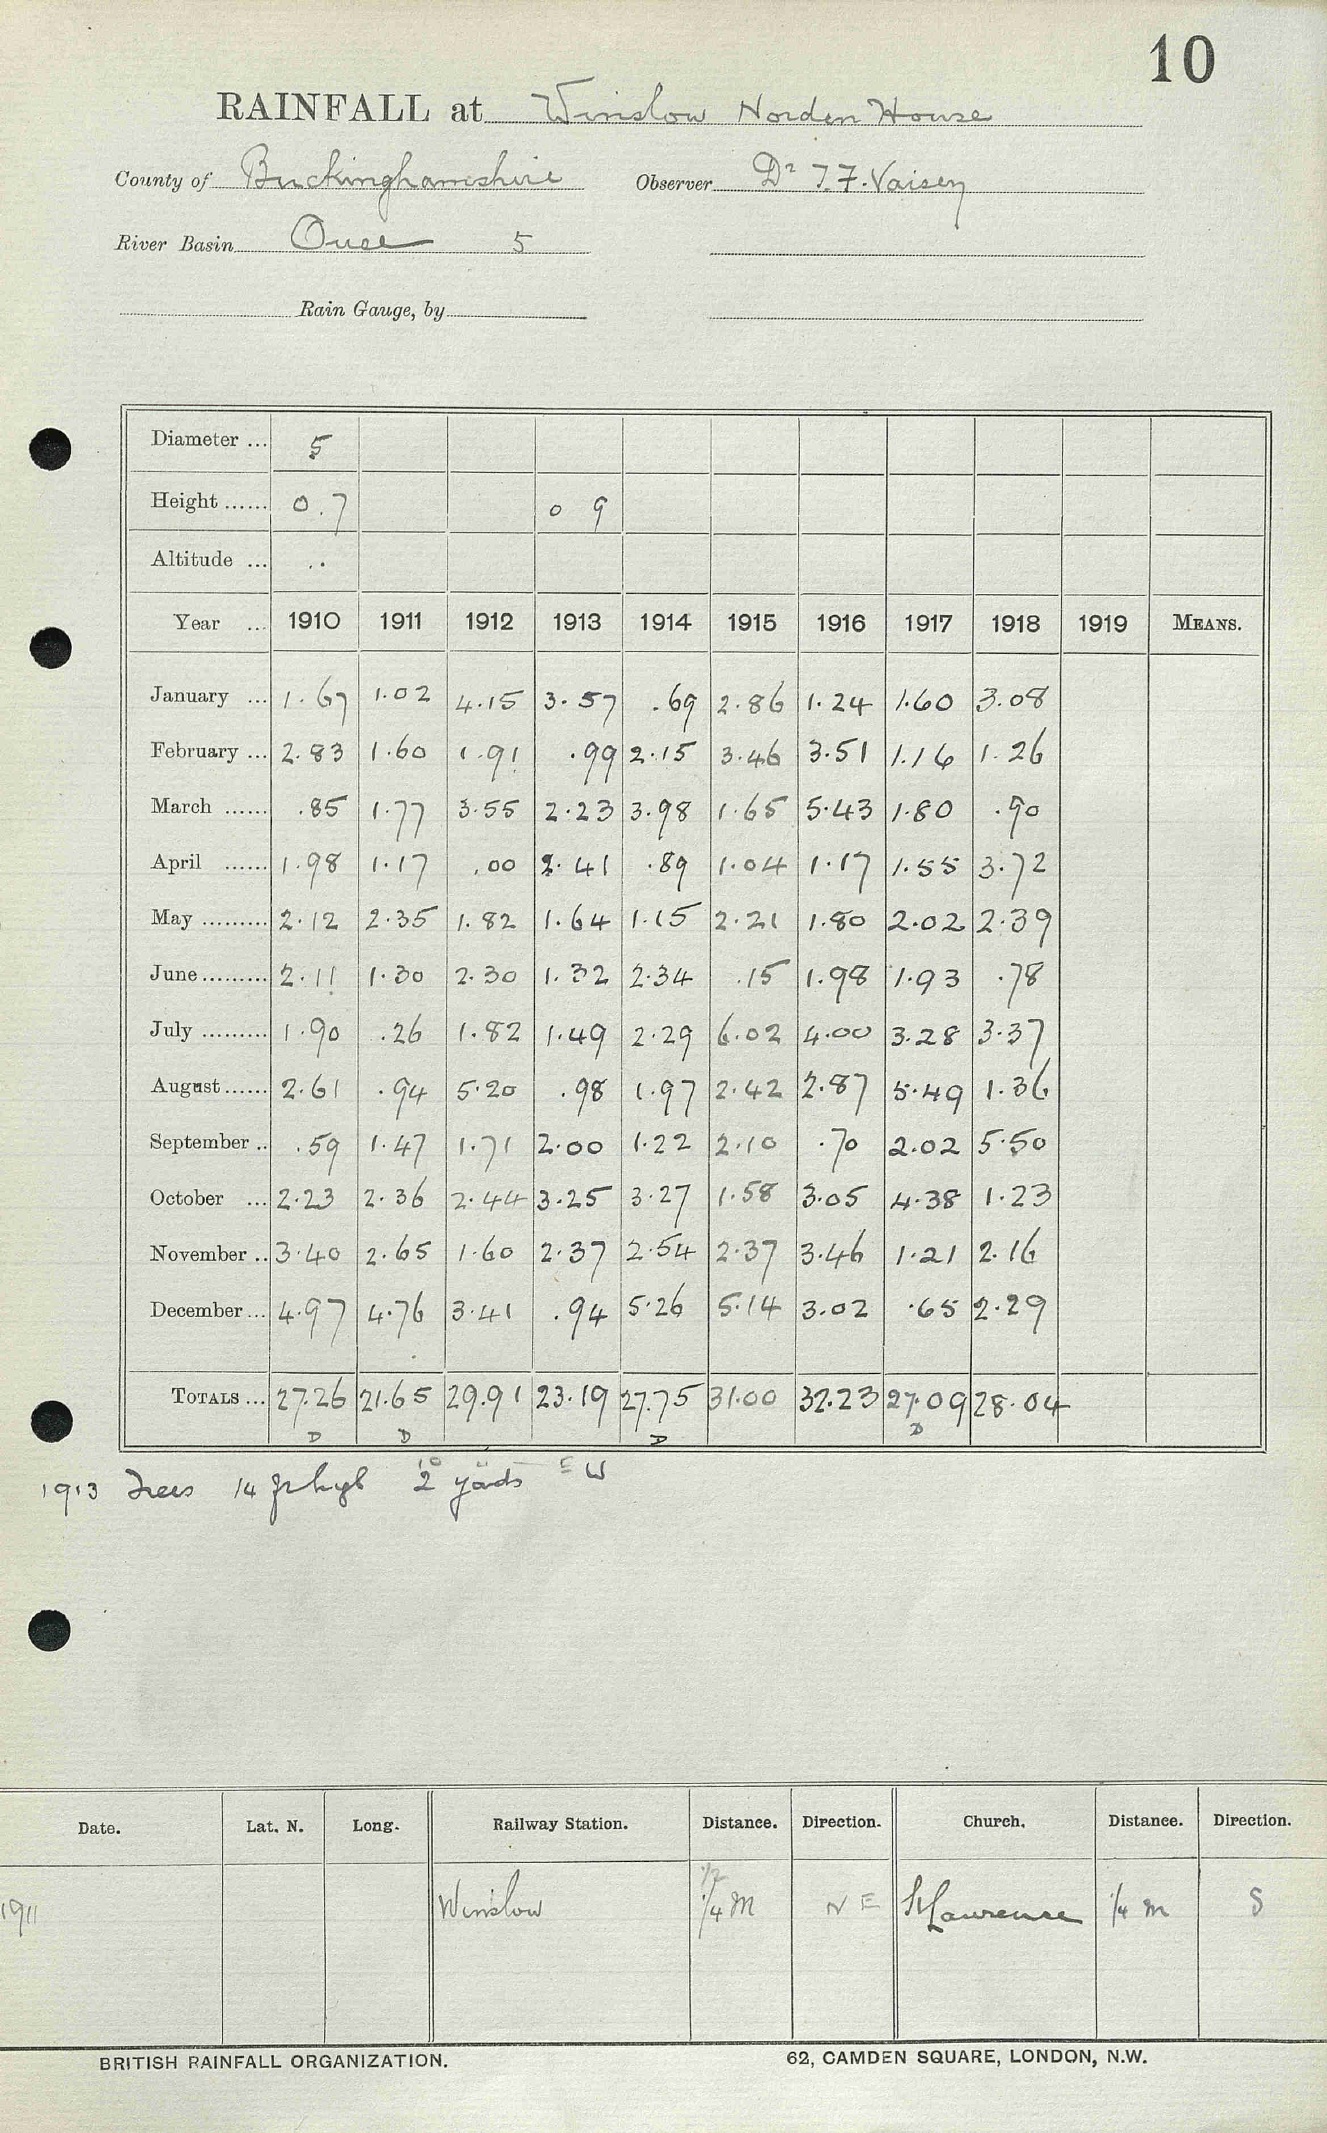 10
RAINFALL at Winslow Norden House
County of Buckinghamshire Observer Dr T. F. Vaisey
River Basin Ouse 5
Rain Gauge, by
Diameter ... 5
Height ...... 0.7 0 9
Altitude ... ..
Year ... 1910 1911 1912 1913 1914 1915 1916 1917 1918 1919 MEANS.
January ... 1.67 1.02 4.15 3.57 .69 2.86 1.24 1.60 3.08
February ... 2.83 1.60 1.91 .99 2.15 3.46 3.51 1.16 1.26
March ...... .85 1.77 3.55 2.23 3.98 1.65 5.43 1.80 .90
April ...... 1.98 1.17 .00 2.41 .89 1.04 1.17 1.55 3.72
May ......... 2.12 2.35 1.82 1.64 1.15 2.21 1.80 2.02 2.39
June ......... 2.11 1.30 2.30 1.32 2.34 .15 1.98 1.93 .78
July ......... 1.90 .26 1.82 1.49 2.29 6.02 4.00 3.28 3.37
August ...... 2.61 .94 5.20 .98 1.97 2.42 2.87 5.49 1.36
September .. .59 1.47 1.71 2.00 1.22 2.10 .70 2.02 5.50
October ... 2.23 2.36 2.44 3.25 3.27 1.58 3.05 4.38 1.23
November .. 3.40 2.65 1.60 2.37 2.54 2.37 3.46 1.21 2.16
December ... 4.97 4.76 3.41 .94 5.26 5.14 3.02 .65 2.29
TOTALS ... 27.26 21.65 29.91 23.19 27.75 31.00 32.23 27.09 28.04
D D D D
1913 Trees 14 ft high 10 2 yards E W
Date. Lat. N. Long. Railway Station. Distance. Direction. Church. Distance. Direction.
1/2
1911 Winslow 1/4 M N E St Lawrence 1/4 m S
BRITISH RAINFALL ORGANIZATION. 62, CAMDEN SQUARE, LONDON, N.W.